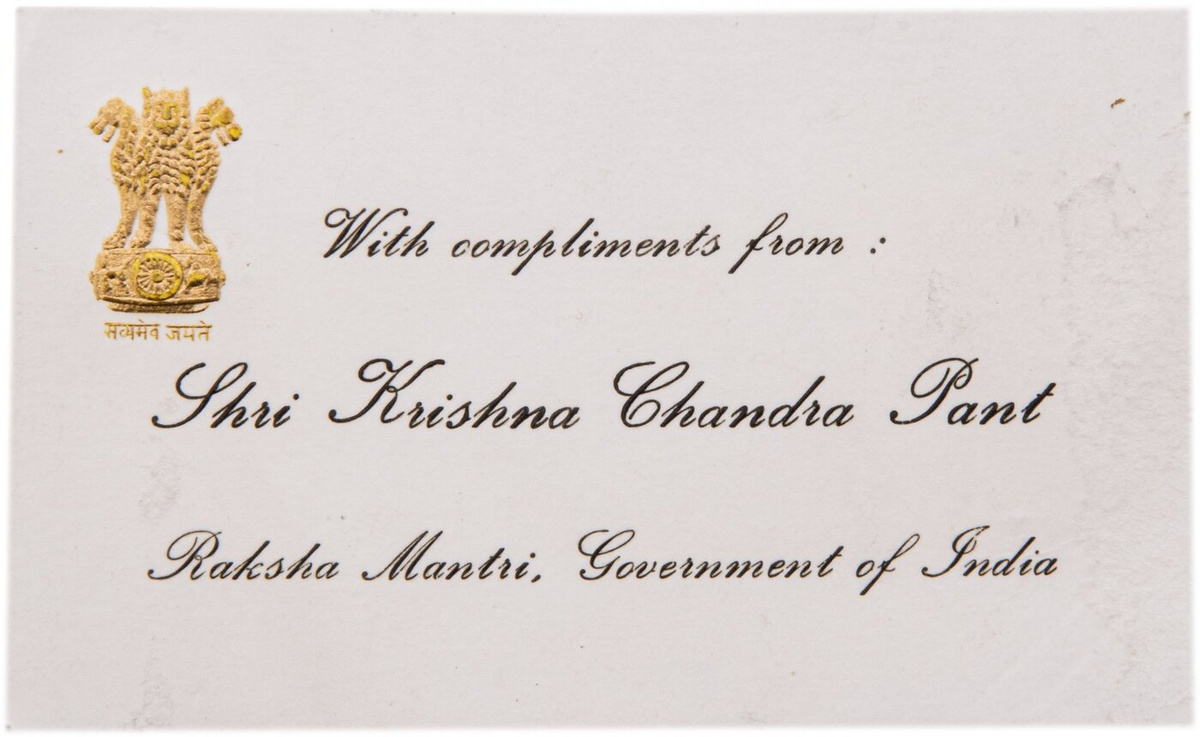 सत्यमेव जयते
With compliments from :
Shri Krishna Chandra Pant
Raksha Mantri, Government of India